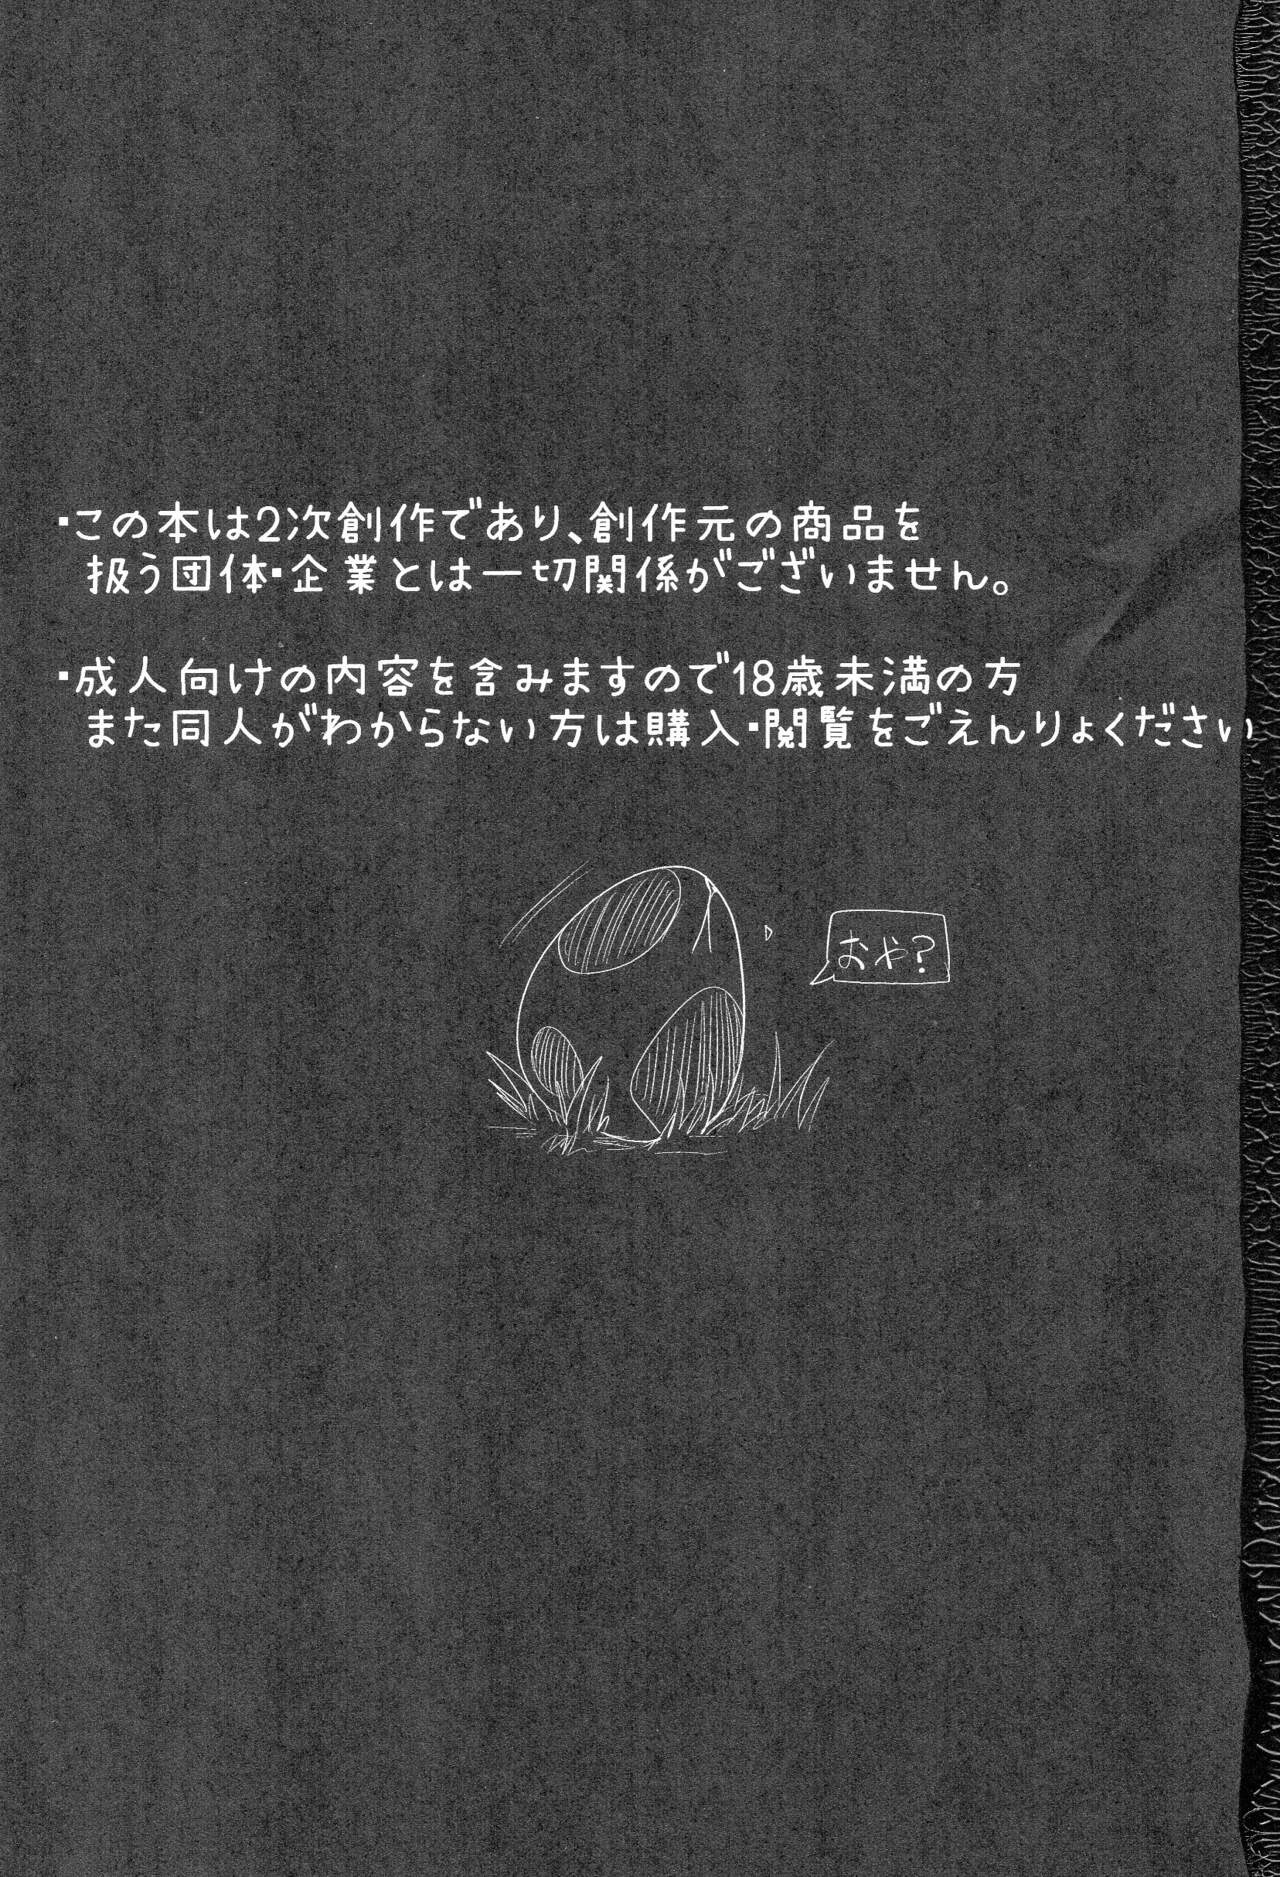 ・この本は2次創作であり、創作元の商品を
扱う団体・企業とは一切関係がございません。
・成人向けの内容を含みますので18歳未満の方
また同人がわからない方は購入・閲覧をごえんりょください
おや?